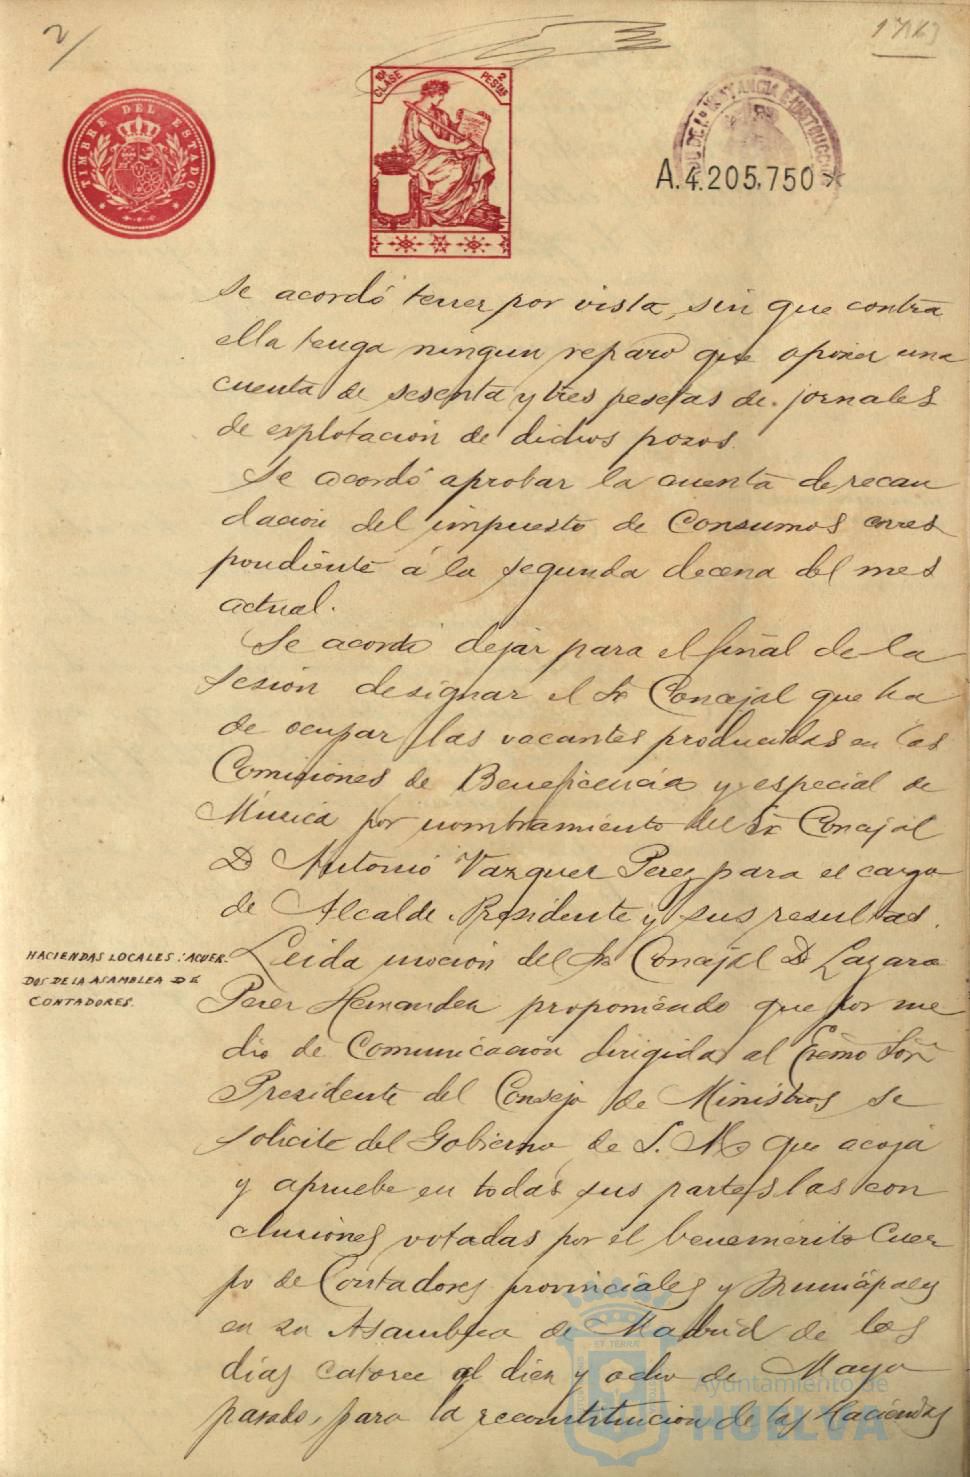 2/
TIMBRE DEL ESTADO
10ª CLASE
2 PESTAS
INSTANCIA E INSTRUCCION
A.4.205,750
se acordó tener por vista, sin que contra
ella tenga ningun reparo que oponer una
cuenta de sesenta y tres pesetas de jornales
de explotacion de dichos pozos.
Se acordó aprobar la cuenta de recau
dacion del impuesto de Consumos corres
pondiente á la segunda decena del mes
actual.
Se acordó dejar para el final de la
sesion designar el Sr Concejal que ha
de ocupar las vacantes producidas en las
Comisiones de Beneficencia y especial de
Música por nombramiento del Sr Concejal
D. Antonio Vazquez Perez para el cargo
de Alcalde Presidente y sus resultas.
HACIENDAS LOCALES: ACUER-
DOS DE LA ASAMBLEA DE
CONTADORES.
Leida mocion del Sr Concejal D. Lazaro
Perez Hernandez proponiendo que por me
dio de Comunicacion dirigida al Excmo Sor
Presidente del Consejo de Ministros se
solicite del Gobierno de S. M. que acoja
y apruebe en todas sus partes las con
clusiones votadas por el benemérito Cuer
po de Contadores provinciales y Municipales
en su Asamblea de Madrid de los
días catorce al diez y ocho de Mayo
pasado, para la reconstitucion de las Haciendas
ET TERRA
Ayuntamiento de
HUELVA